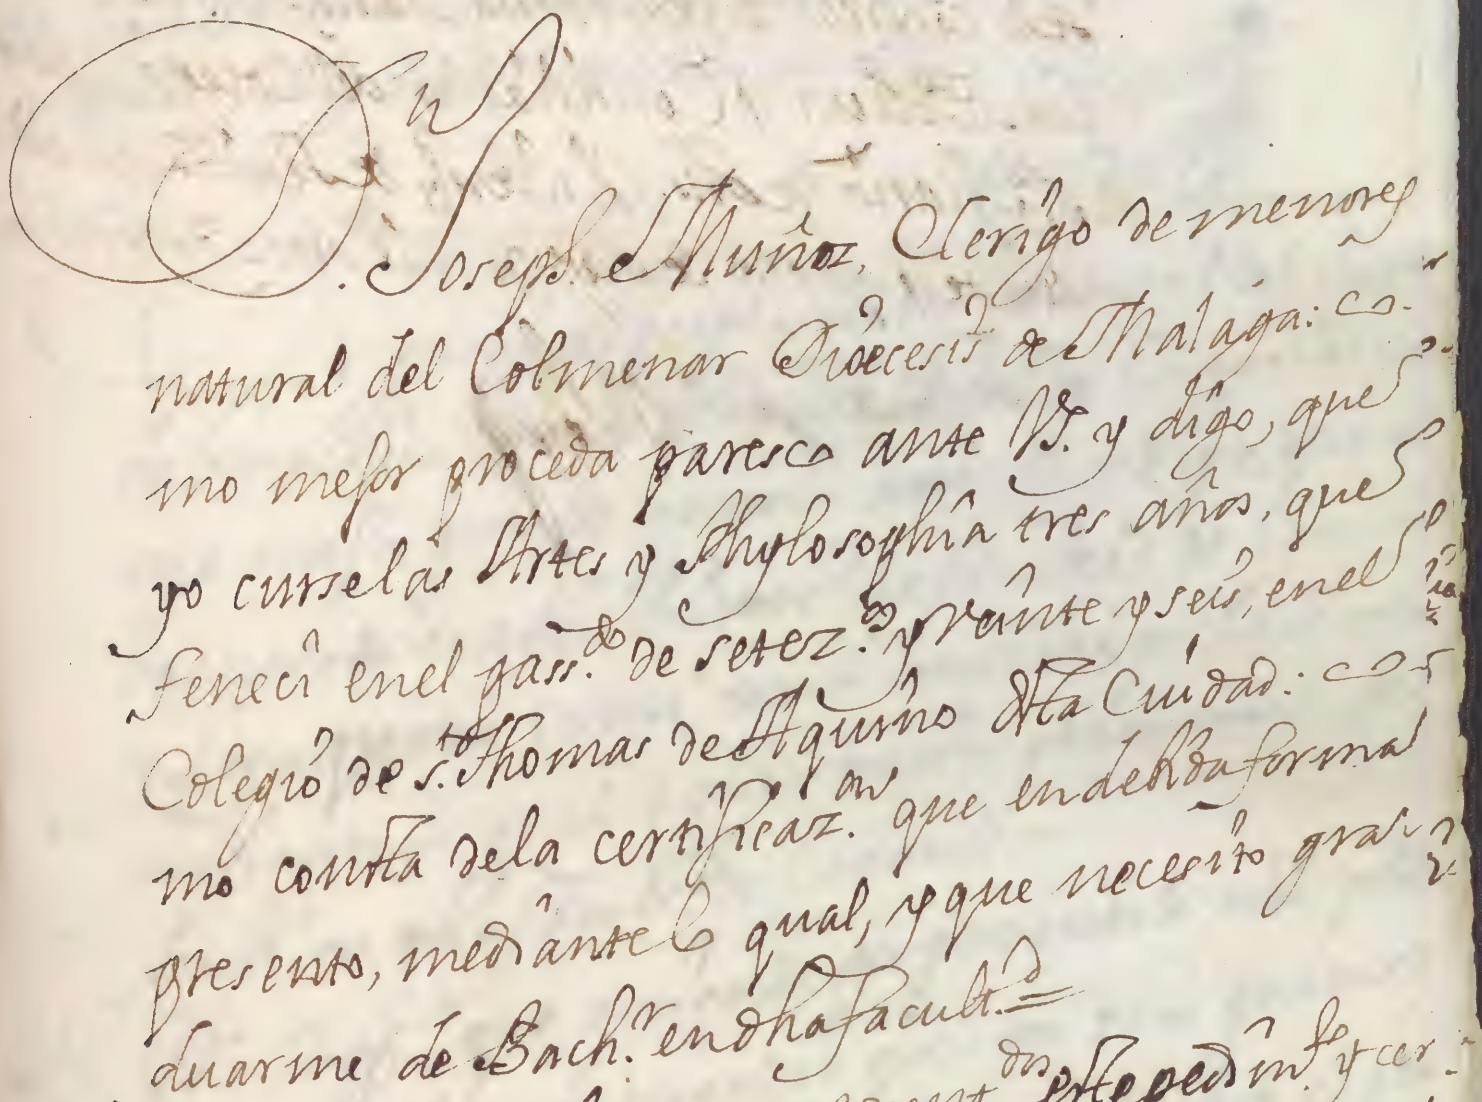 Dn. Joseph Muñoz, Clerigo de menores
natural del Colmenar Diöecesis de Malaga: co-
mo mejor proceda paresco ante Vs. y digo, que
yo curse las Artes y Phylosophia tres años, que
feneci en el pass.do de setez.os y veinte y seis, en el
Colegio de s.to Thomas de Aquino desta Ciudad: co-
mo consta de la certificaz.on que en debida forma
presento, mediante lo qual, y que necesito gra-
duarme de Bach.r en dha facult.d
dos este pedim.to y cer-